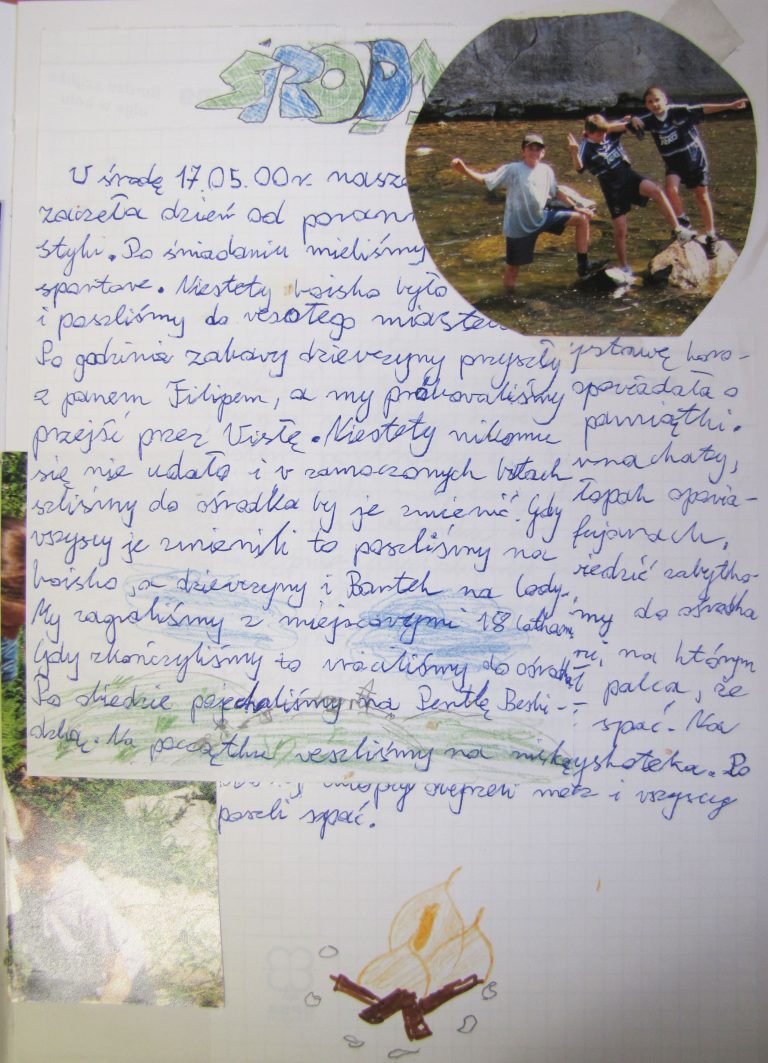 ŚRODA
W środę 17.05.00r. nasza
zaczęła dzień od porann
styki. Po śniadaniu mieliśmy
sportowe. Niestety boisko było
i poszliśmy do wesołego miasteczk
Po godzinie zabawy dziewczyny przyszły
z panem Filipem, a my próbowaliśmy
przejść przez Wisłę. Niestety nikomu
się nie udało i w zamoczonych butach
szliśmy do ośrodka by je zmienić. Gdy
wszyscy je zmienili to poszliśmy na
boisko, a dziewczyny i Bartek na lody.
My zagraliśmy z miejscowymi 18 latkami,
Gdy skończyliśmy to wróciliśmy do ośrodka
Po obiedzie pojechaliśmy na Pentlę Beski-
dzką. Na początku weszliśmy na niską
ystawę koro-
opowiadała o
pamiątki.
wna chaty,
łopak opowia-
fujarach,
redzić zabytko-
my do ośrodka
na którym
palca, że
spać. Na
yskoteka. Po
chłopcy obejrzeli mecz i wszyscy
poszli spać.